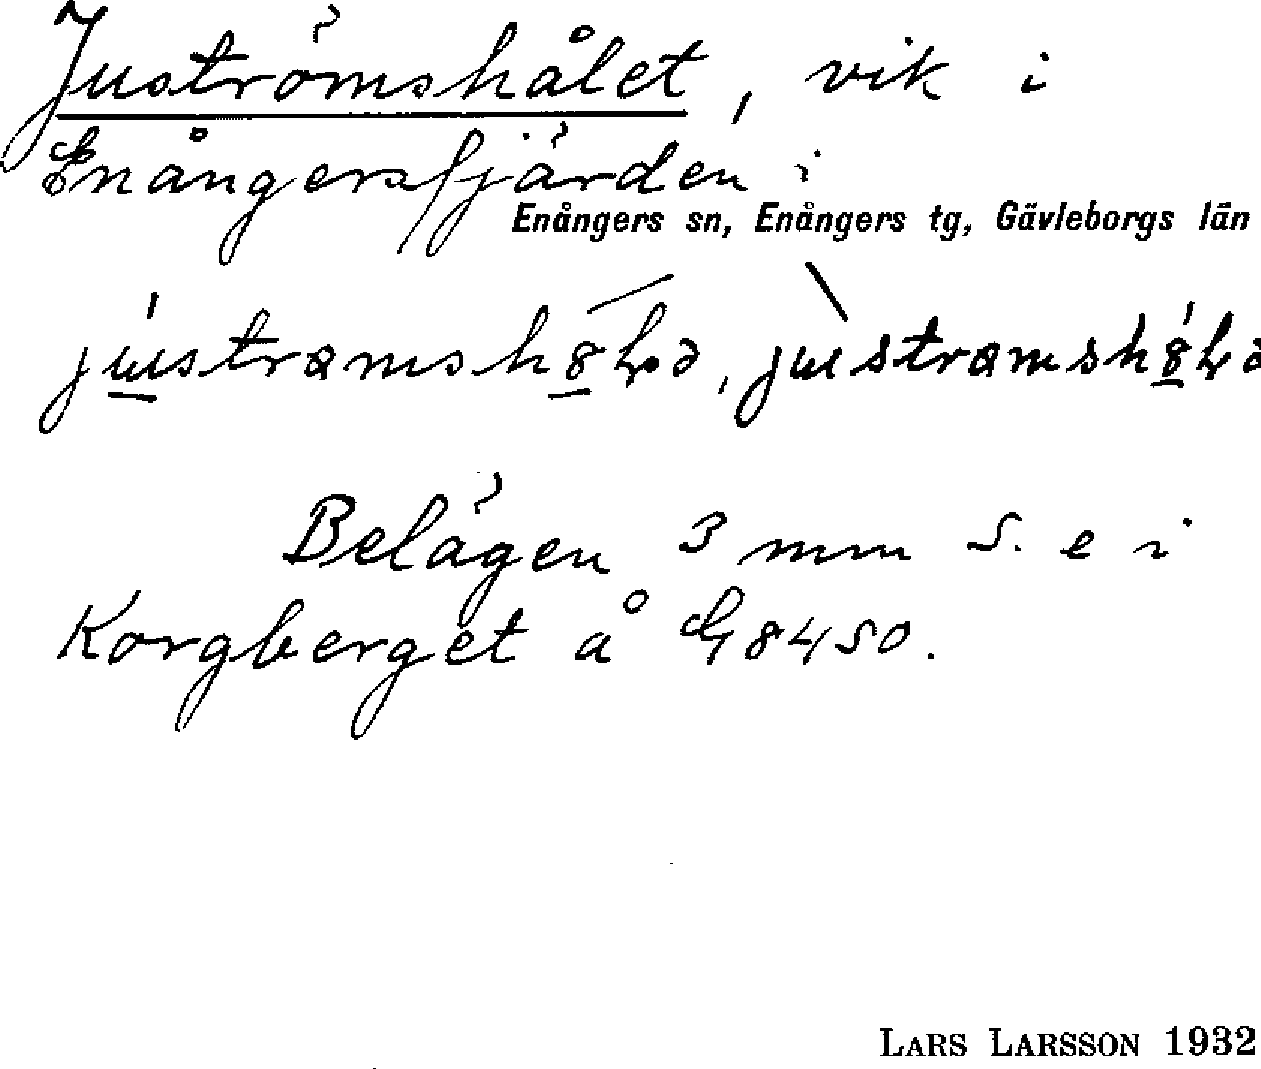 Juströmshålet, vik i
Enångersfjärden i
Enångers sn, Enångers tg, Gävleborgs län
Belägen 3 mm S. e i
Korgberget å G 8450.
LARS LARSSON 1932